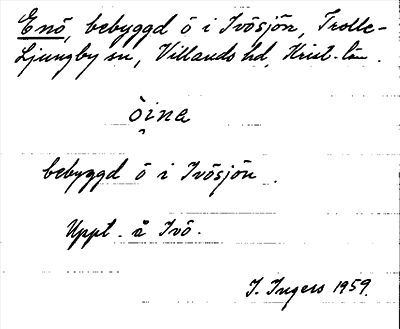 Enö, bebyggd ö i Ivösjön, Trolle-
Ljungby sn, Villands hd, Krist. län.
òi̯na
bebyggd ö i Ivösjön.
Uppt. å Ivö.
I. Ingers 1959.